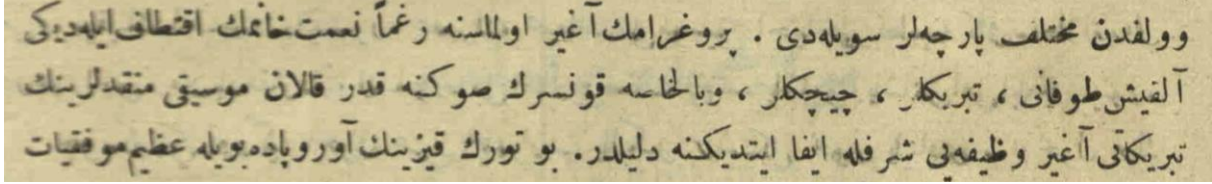 وولفدن مختلف پارچه‌لر سویله‌دی . پروغرامك آغیر اولماسنه رغماً نعمت خانمك اقتطاف ایله‌دیكی
آلقیش طوفانی ، تبریكلر ، چیچكلر ، وبالخاصه قونسرك صوكنه قدر قالان موسیقی منقدلرینك
تبریكاتی آغیر وظیفه‌یی شرفله ایفا ایتدیكنه دلیلدر. بو تورك قیزینك آوروپاده بویله عظیم موفقیات